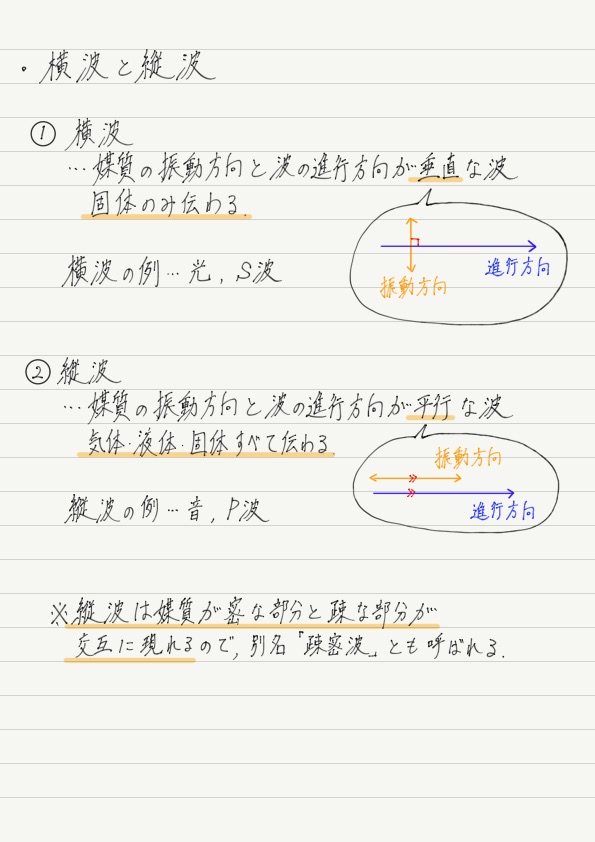 ・横波と縦波
① 横波
…媒質の振動方向と波の進行方向が垂直な波
固体のみ伝わる.
横波の例…光, S波
進行方向
振動方向
② 縦波
…媒質の振動方向と波の進行方向が平行な波
気体・液体・固体すべて伝わる.
振動方向
縦波の例…音, P波
進行方向
※縦波は媒質が密な部分と疎な部分が
交互に現れるので, 別名『疎密波』とも呼ばれる.